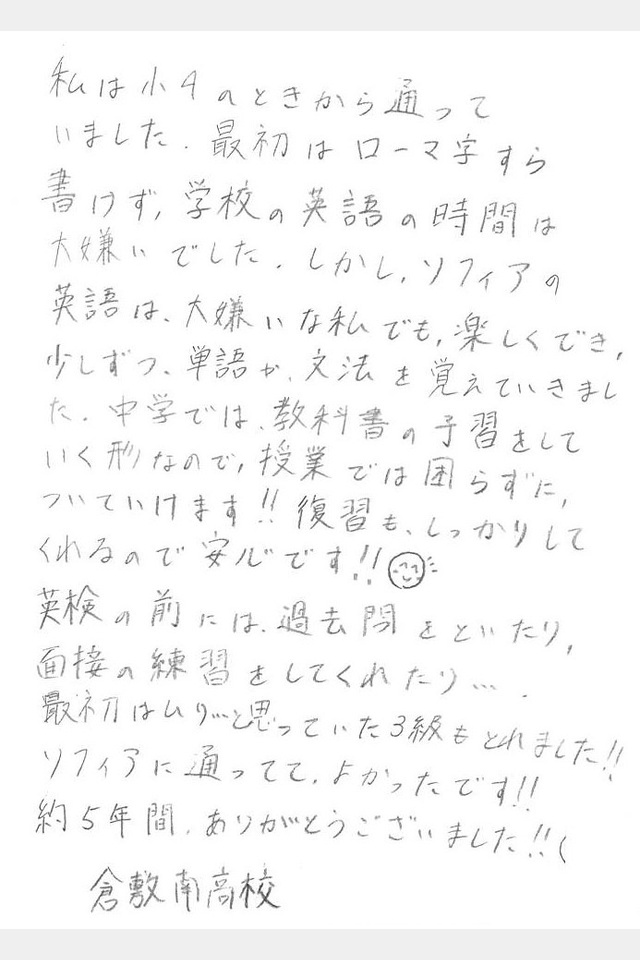 私は小4のときから通って
いました.最初はローマ字すら
書けず,学校の英語の時間は
大嫌いでした.しかし,ソフィアの
英語は、大嫌いな私でも,楽しくでき,
少しずつ、単語か、文法を覚えていきまし
た.中学では、教科書の予習をして
いく形なので,授業では困らずに,
ついていけます!!復習も、しっかりして
くれるので安心です!!
英検の前には、過去問をといたり,
面接の練習をしてくれたり….
最初はムリ…と思っていた3級もとれました!!
ソフィアに通ってて,よかったです!!
約5年間,ありがとうございました!!(
倉敷南高校